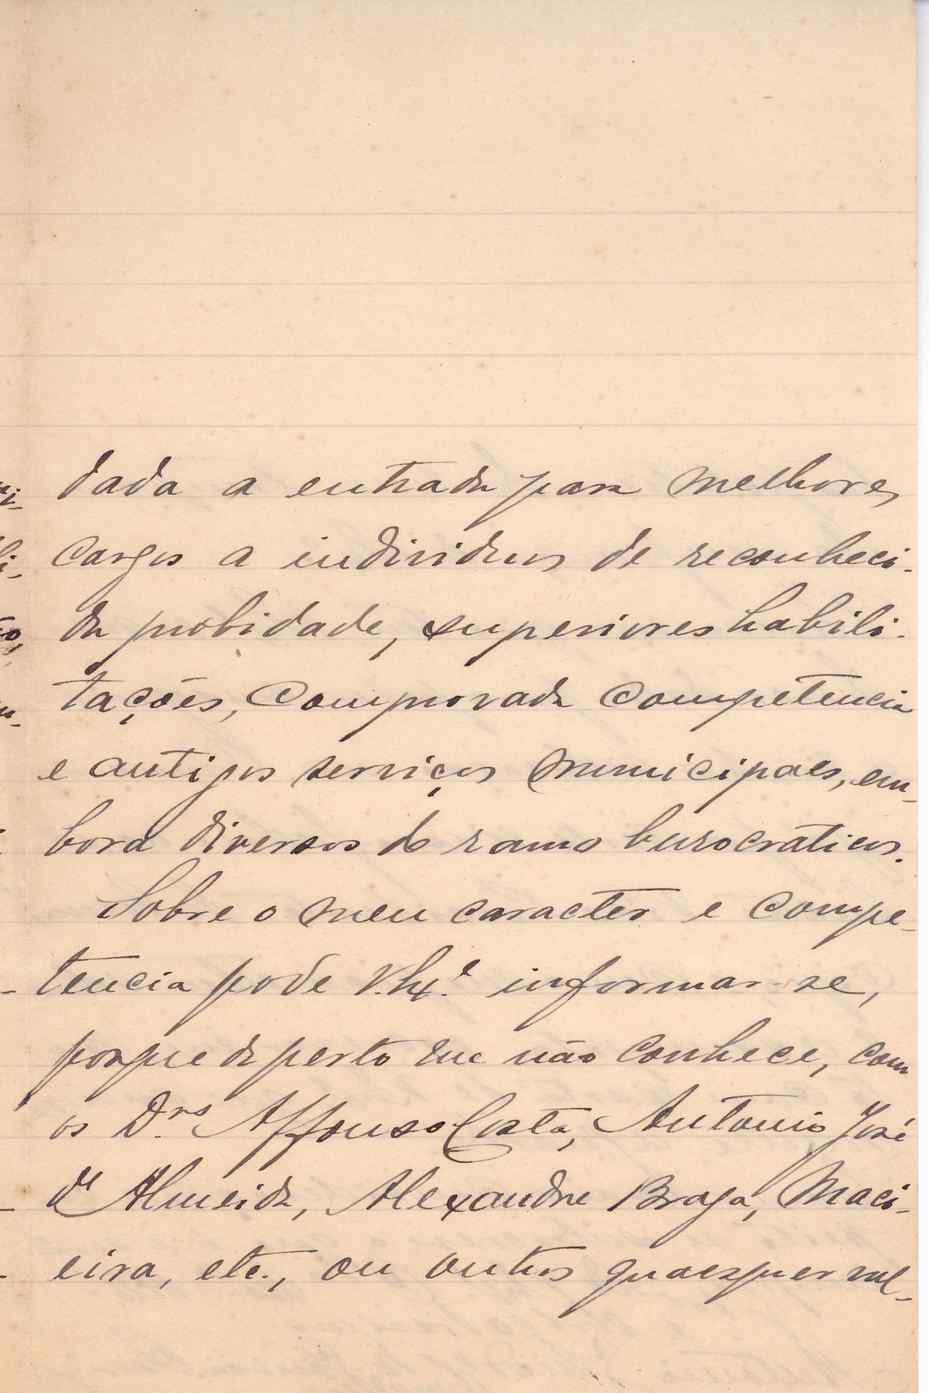 dada a entrada para melhores
cargos a individuos de reconheci-
da probidade, superiores habili-
tações, comprovada competencia
e antigos serviços municipaes, em-
bora diversos do ramo burocratico.
Sobre o meu caracter e compe-
tencia pode V. Ex.ª informar-se,
porque de perto me não conhece, com
os D.rs Affonso Costa, Antonio José
d'Almeida, Alexandre Braga, Maci-
eira, etc., ou outros quaesquer vul-